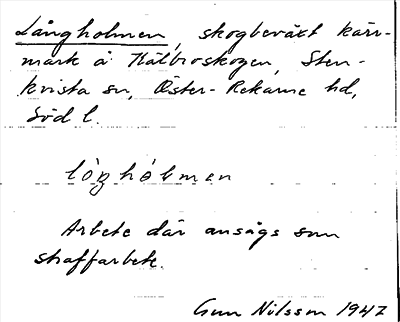 Långholmen, skogbeväxt kärr-
mark å Kälbroskogen, Sten-
kvista sn, Öster-Rekarne hd,
Söd l.
lòŋhòlmen
Arbete där ansågs som
straffarbete.
Gun Nilsson 1947